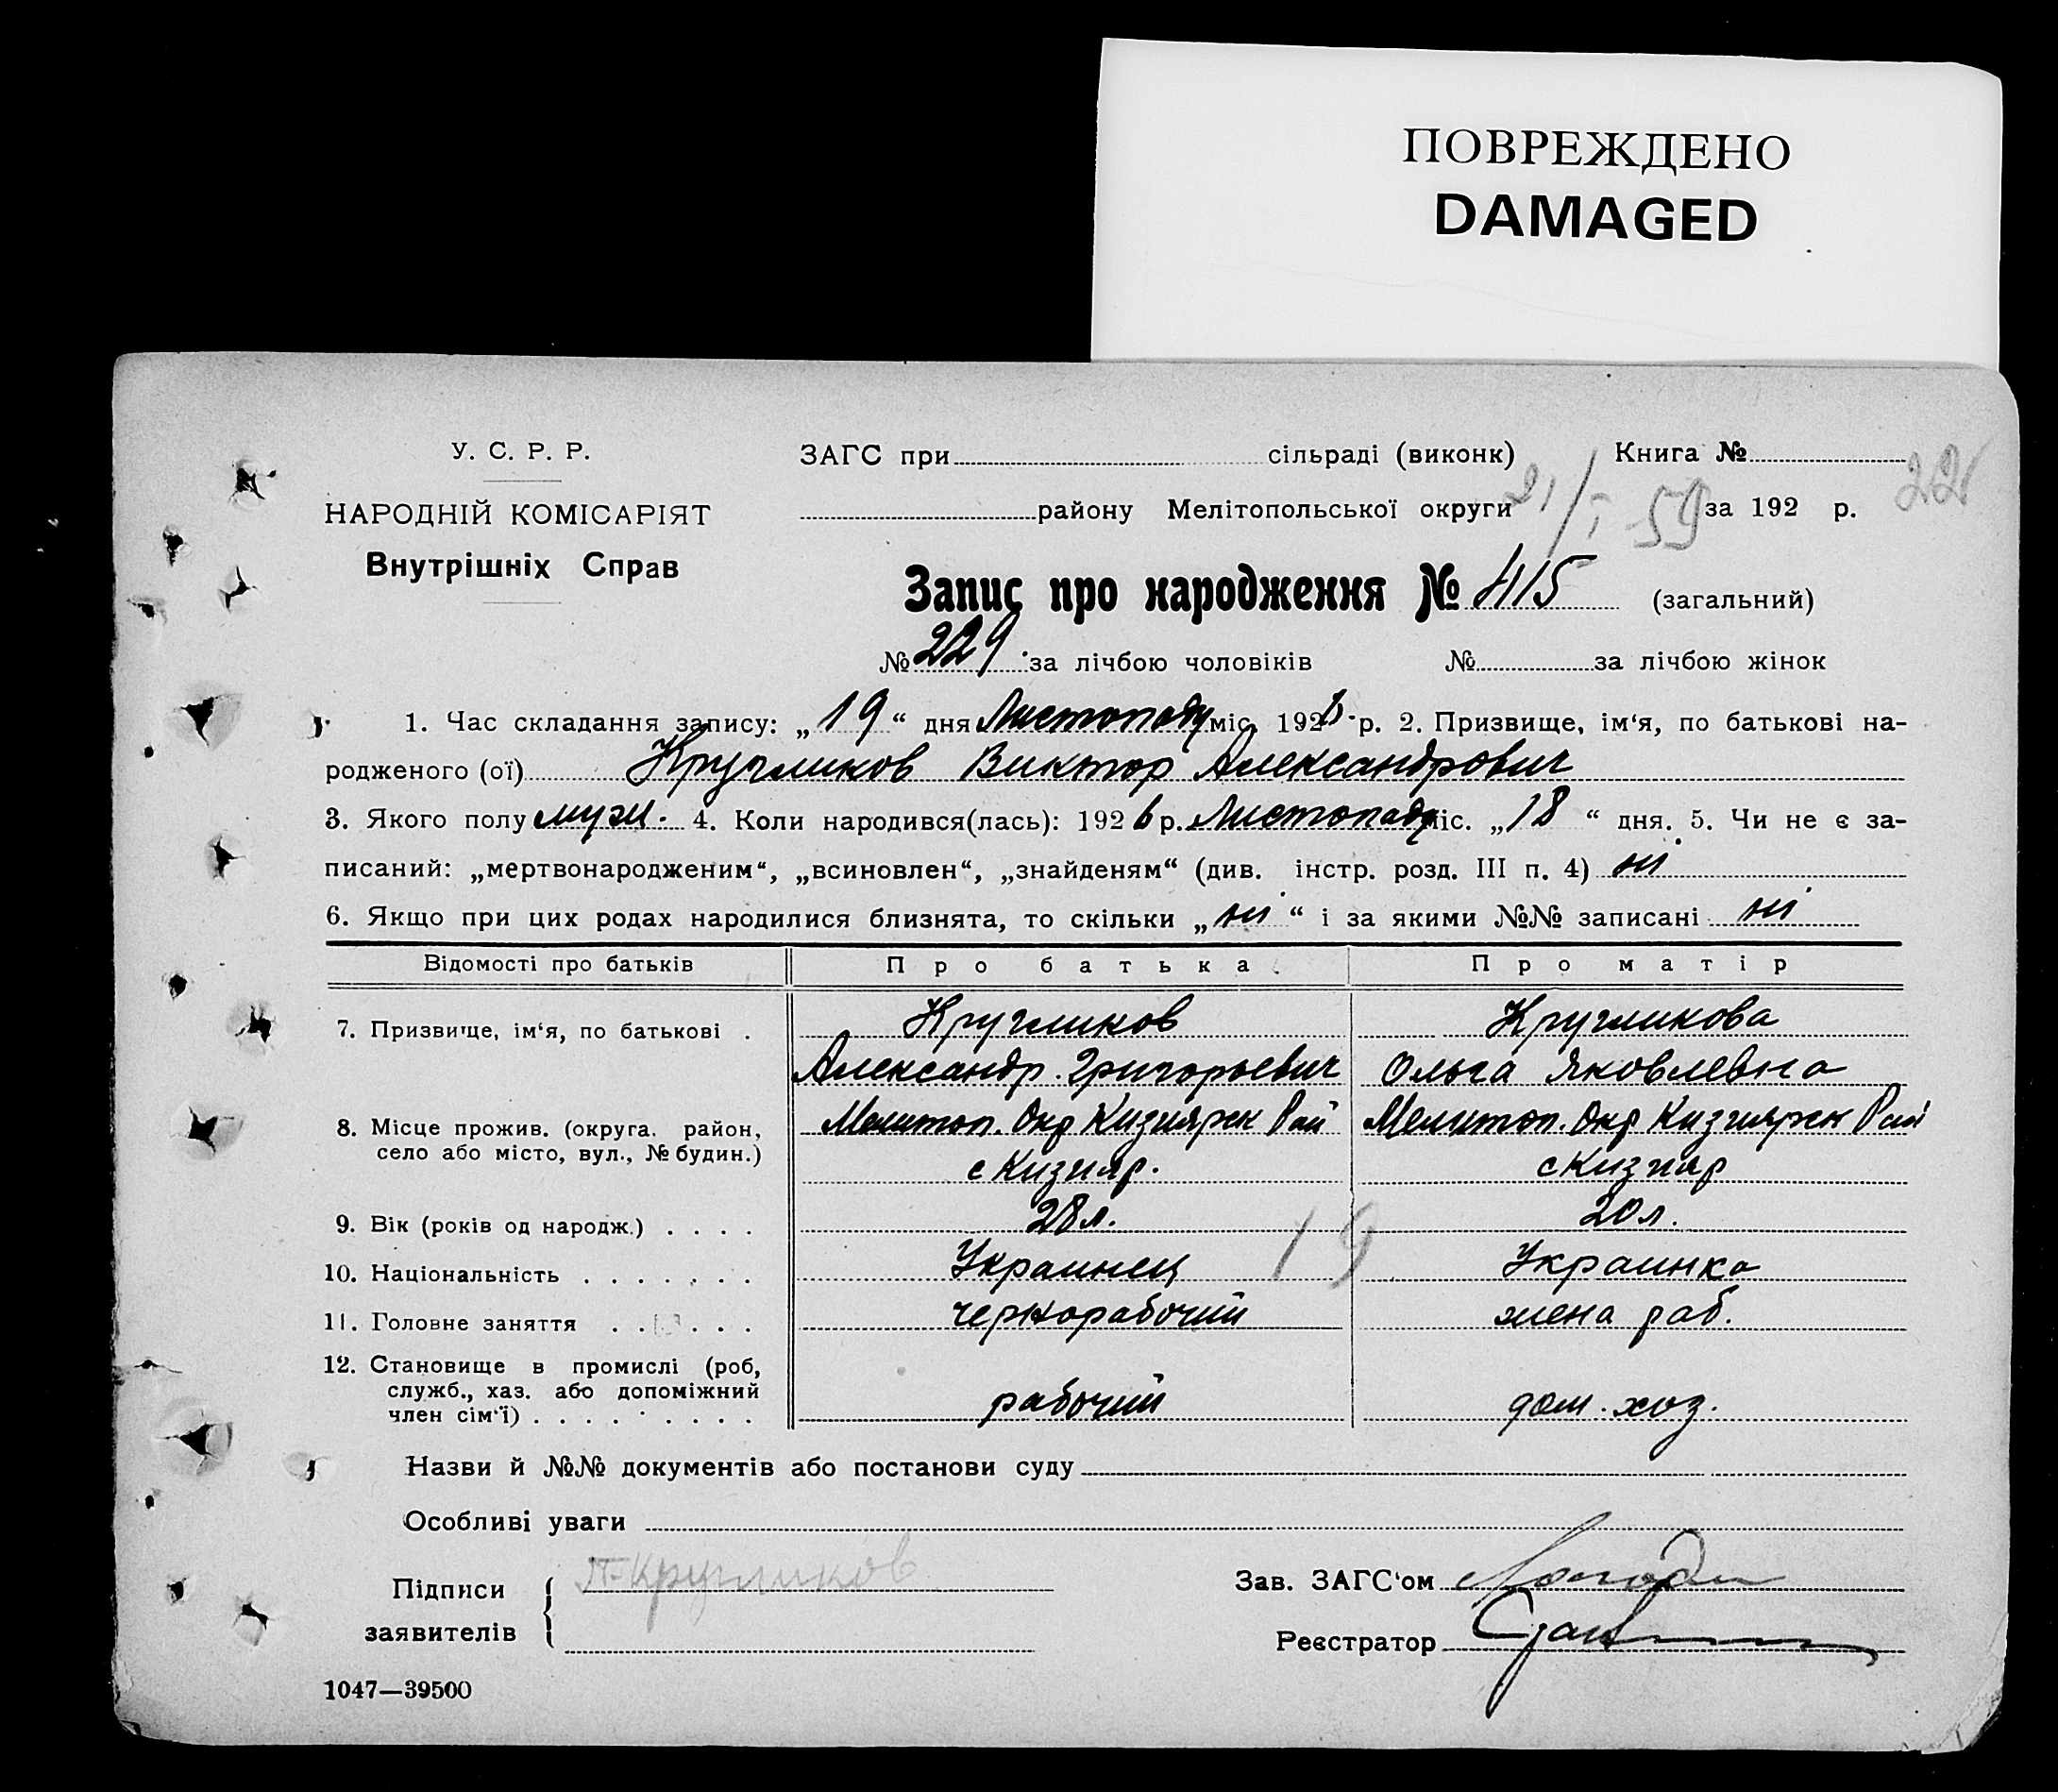 ПОВРЕЖДЕНО
DAMAGED
У. С. Р. Р.
НАРОДНІЙ КОМІСАРІЯТ
Внутрішніх Справ
ЗАГС при сільраді (виконк) Книга № 22
району Мелітопольської округи 21/I-59 за 192 р.
Запис про народження № 415 (загальний)
№ 229. за лічбою чоловіків № за лічбою жінок
1. Час складання запису: „19“ дня Листопаду міс. 1926. р. 2. Призвище, ім‘я, по батькові на-
родженого (ої) Кругликов Виктор Александрович
3. Якого полу муж. 4. Коли народився(лась): 1926 р. Листопаду міс. „18“ дня. 5. Чи не є за-
писаний: „мертвонародженим“, „всиновлен“, „знайденям“ (див. інстр. розд. III п. 4) ні
6. Якщо при цих родах народилися близнята, то скільки „ні“ і за якими №№ записані ні
Відомості про батьків Про батька Про матір
7. Призвище, ім‘я, по батькові . Кругликов Кругликова
Александр. Григорьевич Ольга Яковлевна
8. Місце прожив. (округа, район, Мелитоп. Окр Кизиярск Рай Мелитоп. Окр Кизиярск Рай
село або місто, вул., № будин.) с Кизияр. с Кизияр
9. Вік (років од народж.) . . . . 28 л. 20 л.
10. Національність . . . . . . . Украинец 19 Украинка
11. Головне заняття . . . . . чернорабочий жена раб.
12. Становище в промислі (роб,
служб., хаз. або допоміжний
член сім‘ї) . . . . . . . . . рабочий дом. хоз.
Назви й №№ документів або постанови суду
Особливі уваги
Підписи Кругликов
заявителів
Зав. ЗАГС‘ом
Реєстратор
1047—39500